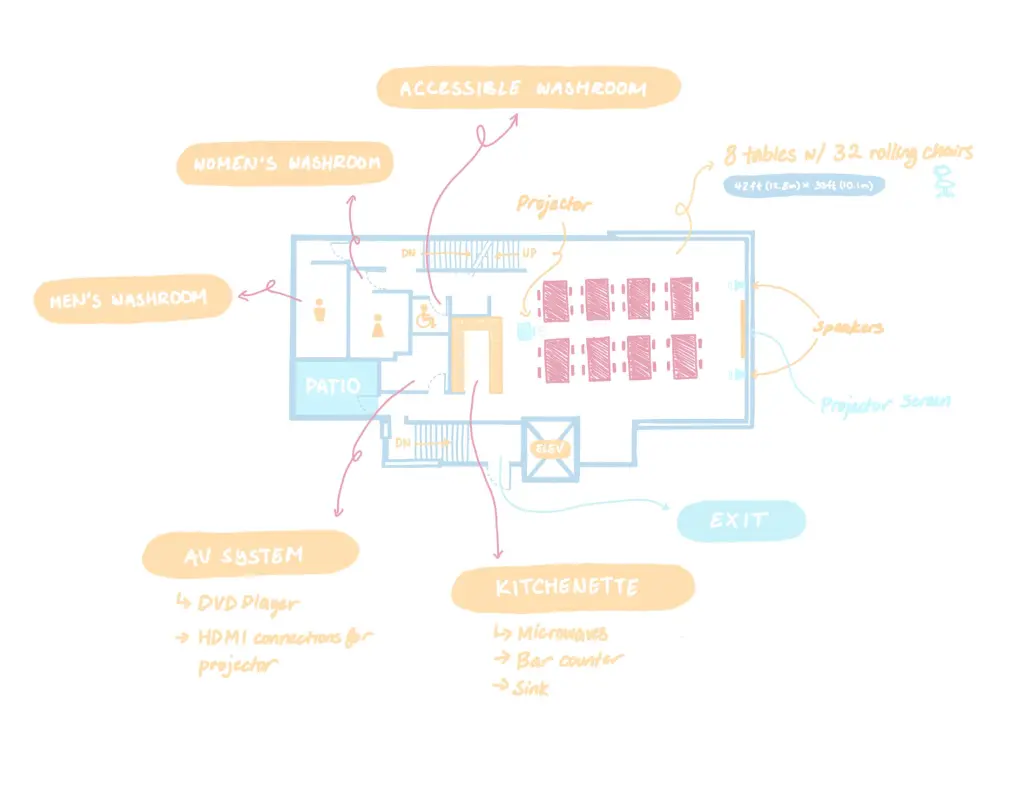 ACCESSIBLE WASHROOM
WOMEN'S WASHROOM
8 tables w/ 32 rolling chairs
42ft (12.8m) × 33ft (10.1m)
Projector
DN
UP
MEN'S WASHROOM
Speakers
PATIO
Projector Screen
DN
ELEV
EXIT
AV SYSTEM
DVD Player
HDMI connections for
projector
KITCHENETTE
Microwaves
Bar counter
Sink